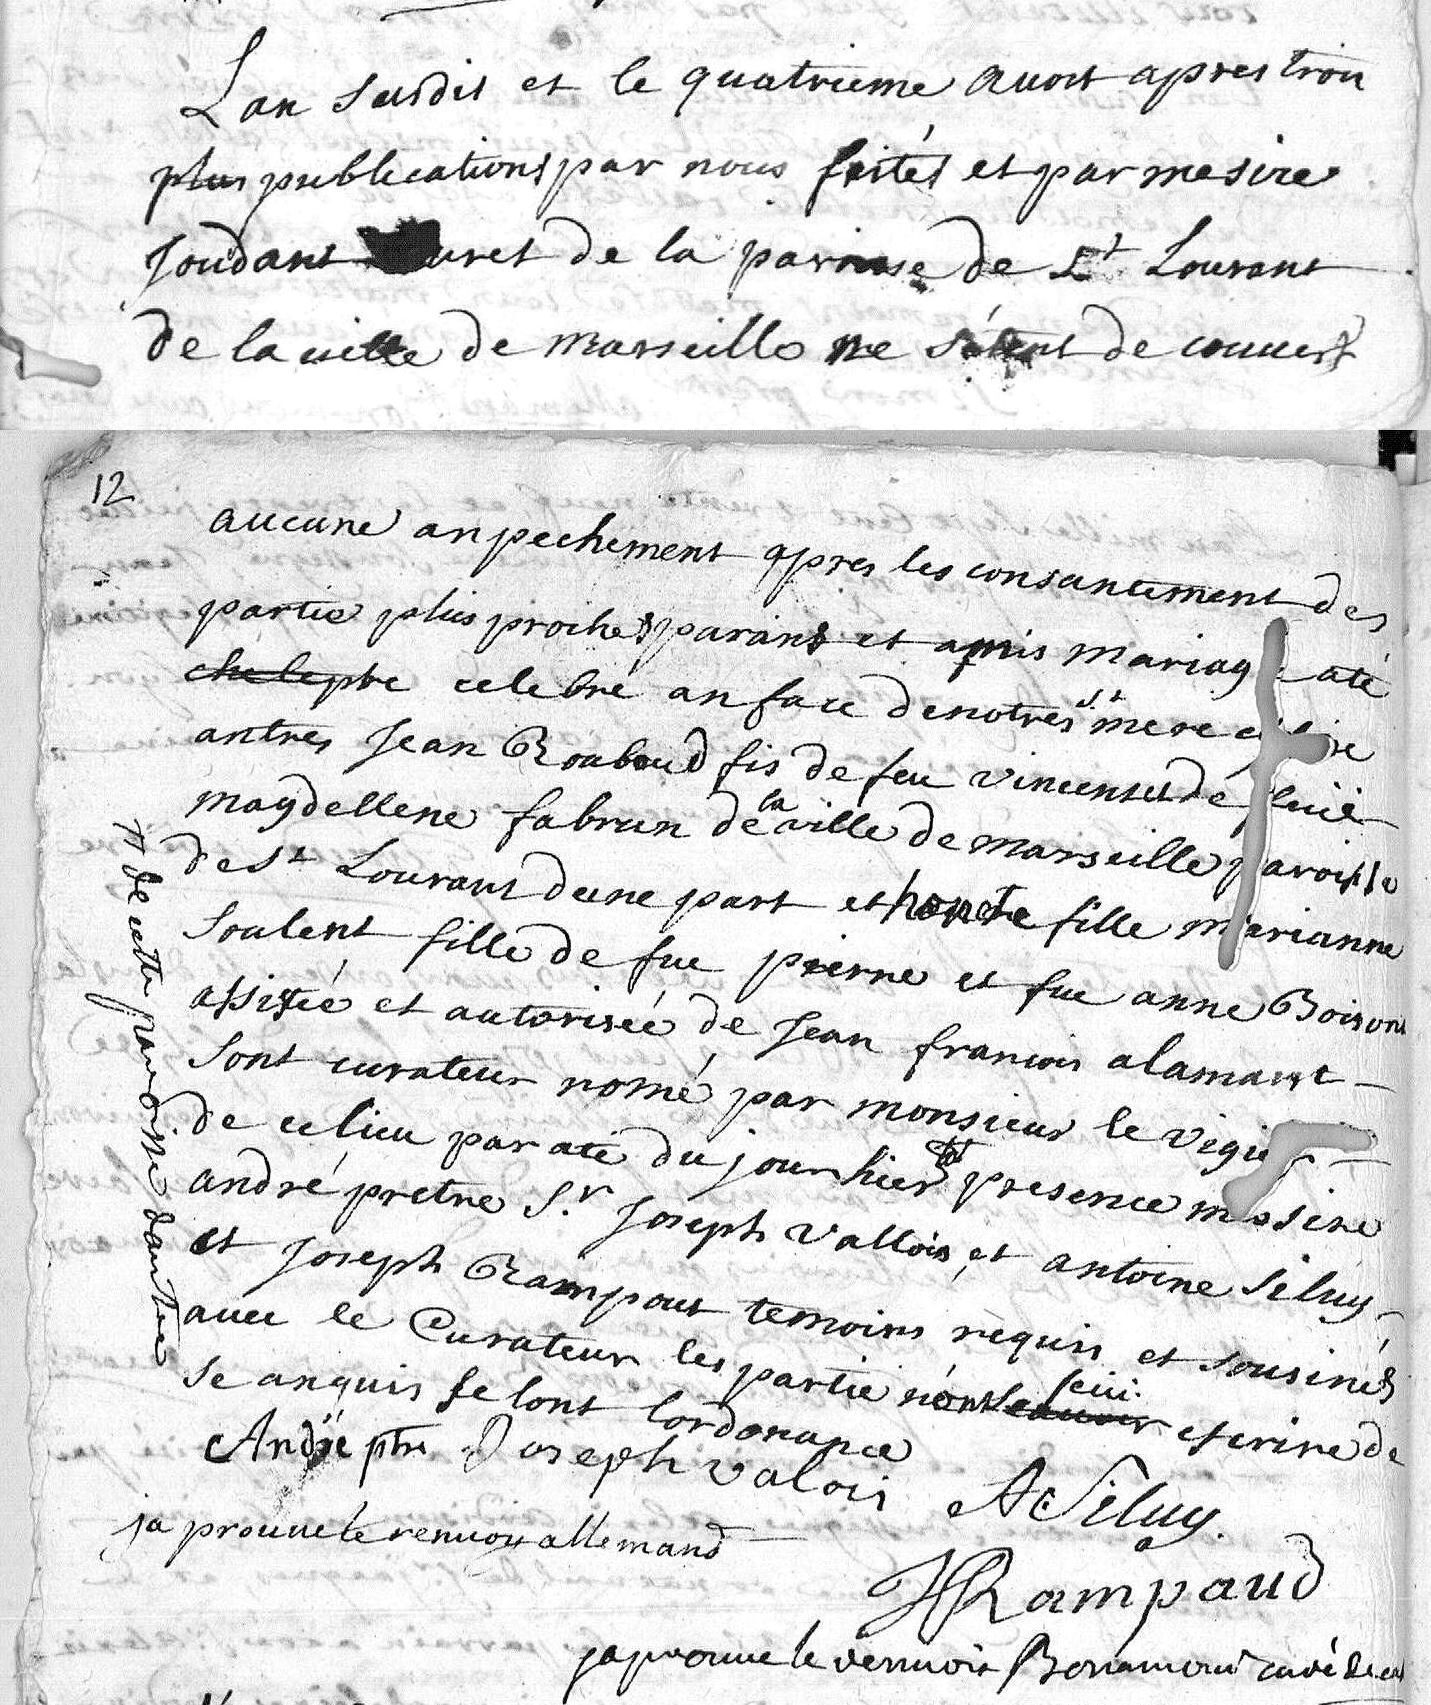 Lan susdit et le quatrieme avost apres trois
plus publications par nous feités et par mesire
Joudant curet de la paroisse de St Lourant
de la ville de marseille ne s'étent de couvert
12
aucune anpechement apres les consantement des
partie plus proches parans et amis mariage até
celebré an face de notres st mere eglise
antres Jean Roaboud fis de feu vincens et de
magdellene fabrun de la ville de marseille paroisse
de St Lourant dune part et honete fille marianne
Soulent fille de fue pierre et fue anne Boisons
assistée et autorisée de Jean francois alamant
Sont curateur nomé par monsieur le vigier
de ce lieu par ate du jour hier presence mesire
andré pretre S.r Joseph vallois et antoine Siluy
et Joseph Rampaut temoins requis et sousinés
avec le Curateur les partie n'ont seui escrire de
se anquis selont lordonance
de cette paroisse dautre
Andre ptre Joseph valois A Siluy.
ja prouve le renvoy allemand
JRampaud
japrouve le renvois Bonnmoui curé de ce